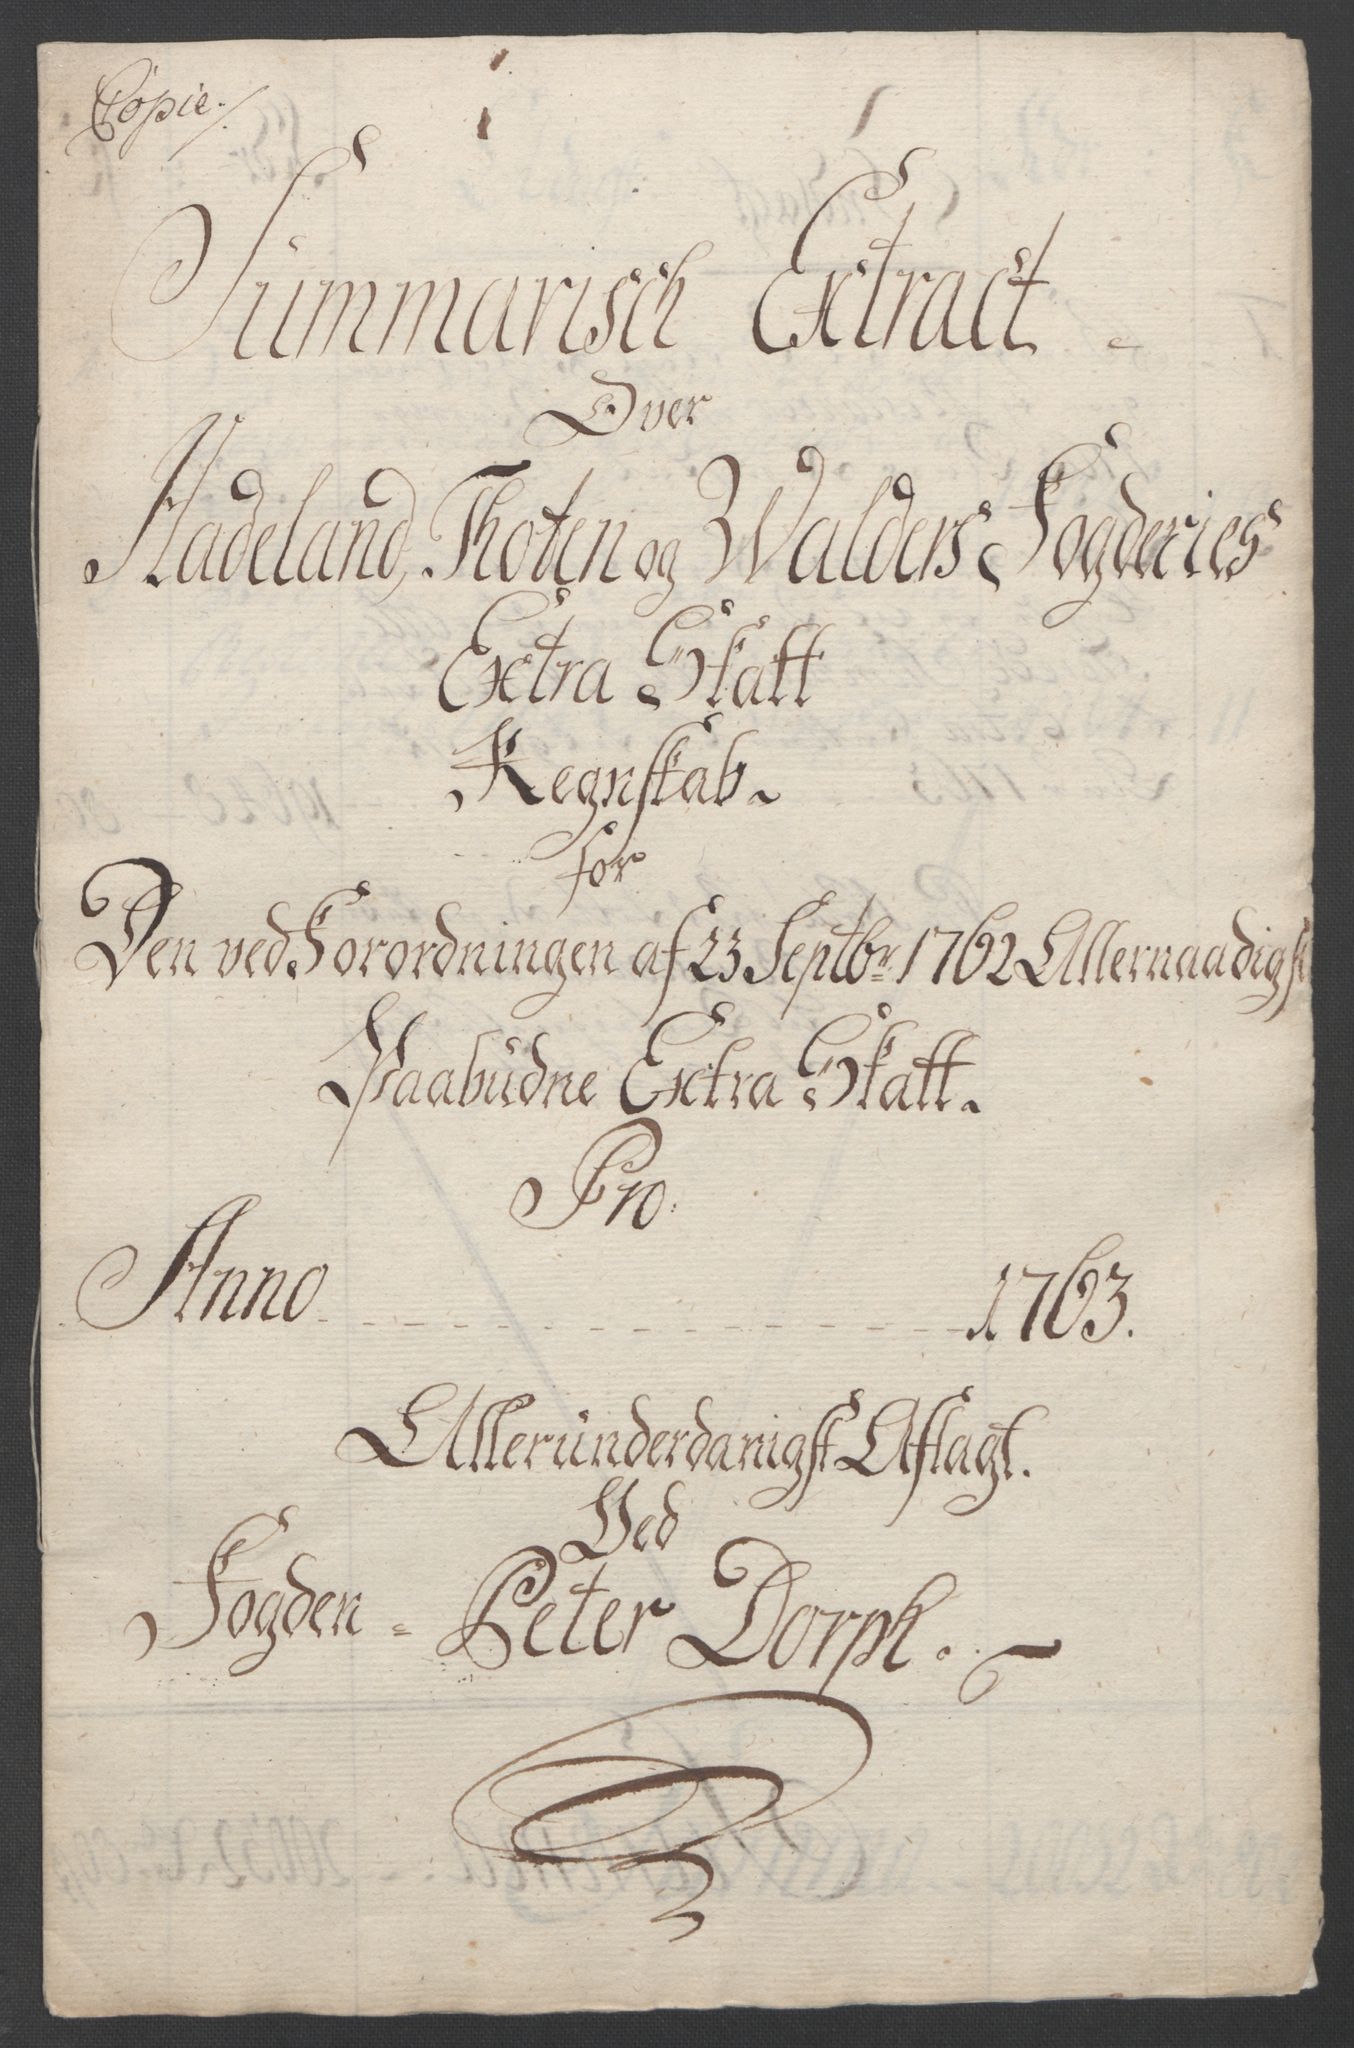 Copie.
Summarisch Extract
Over
Hadeland, Thoten og Walders Fogderies
Extra Skatt
Regnskab.
for
Den ved Forordningen af 23 Septbr. 1762 Allernaadigst
Paabudne Extra Skatt.
Pro
Anno 1763.
Allerunderdanigst Aflagt.
Ved
Fogden Peter Dorph.